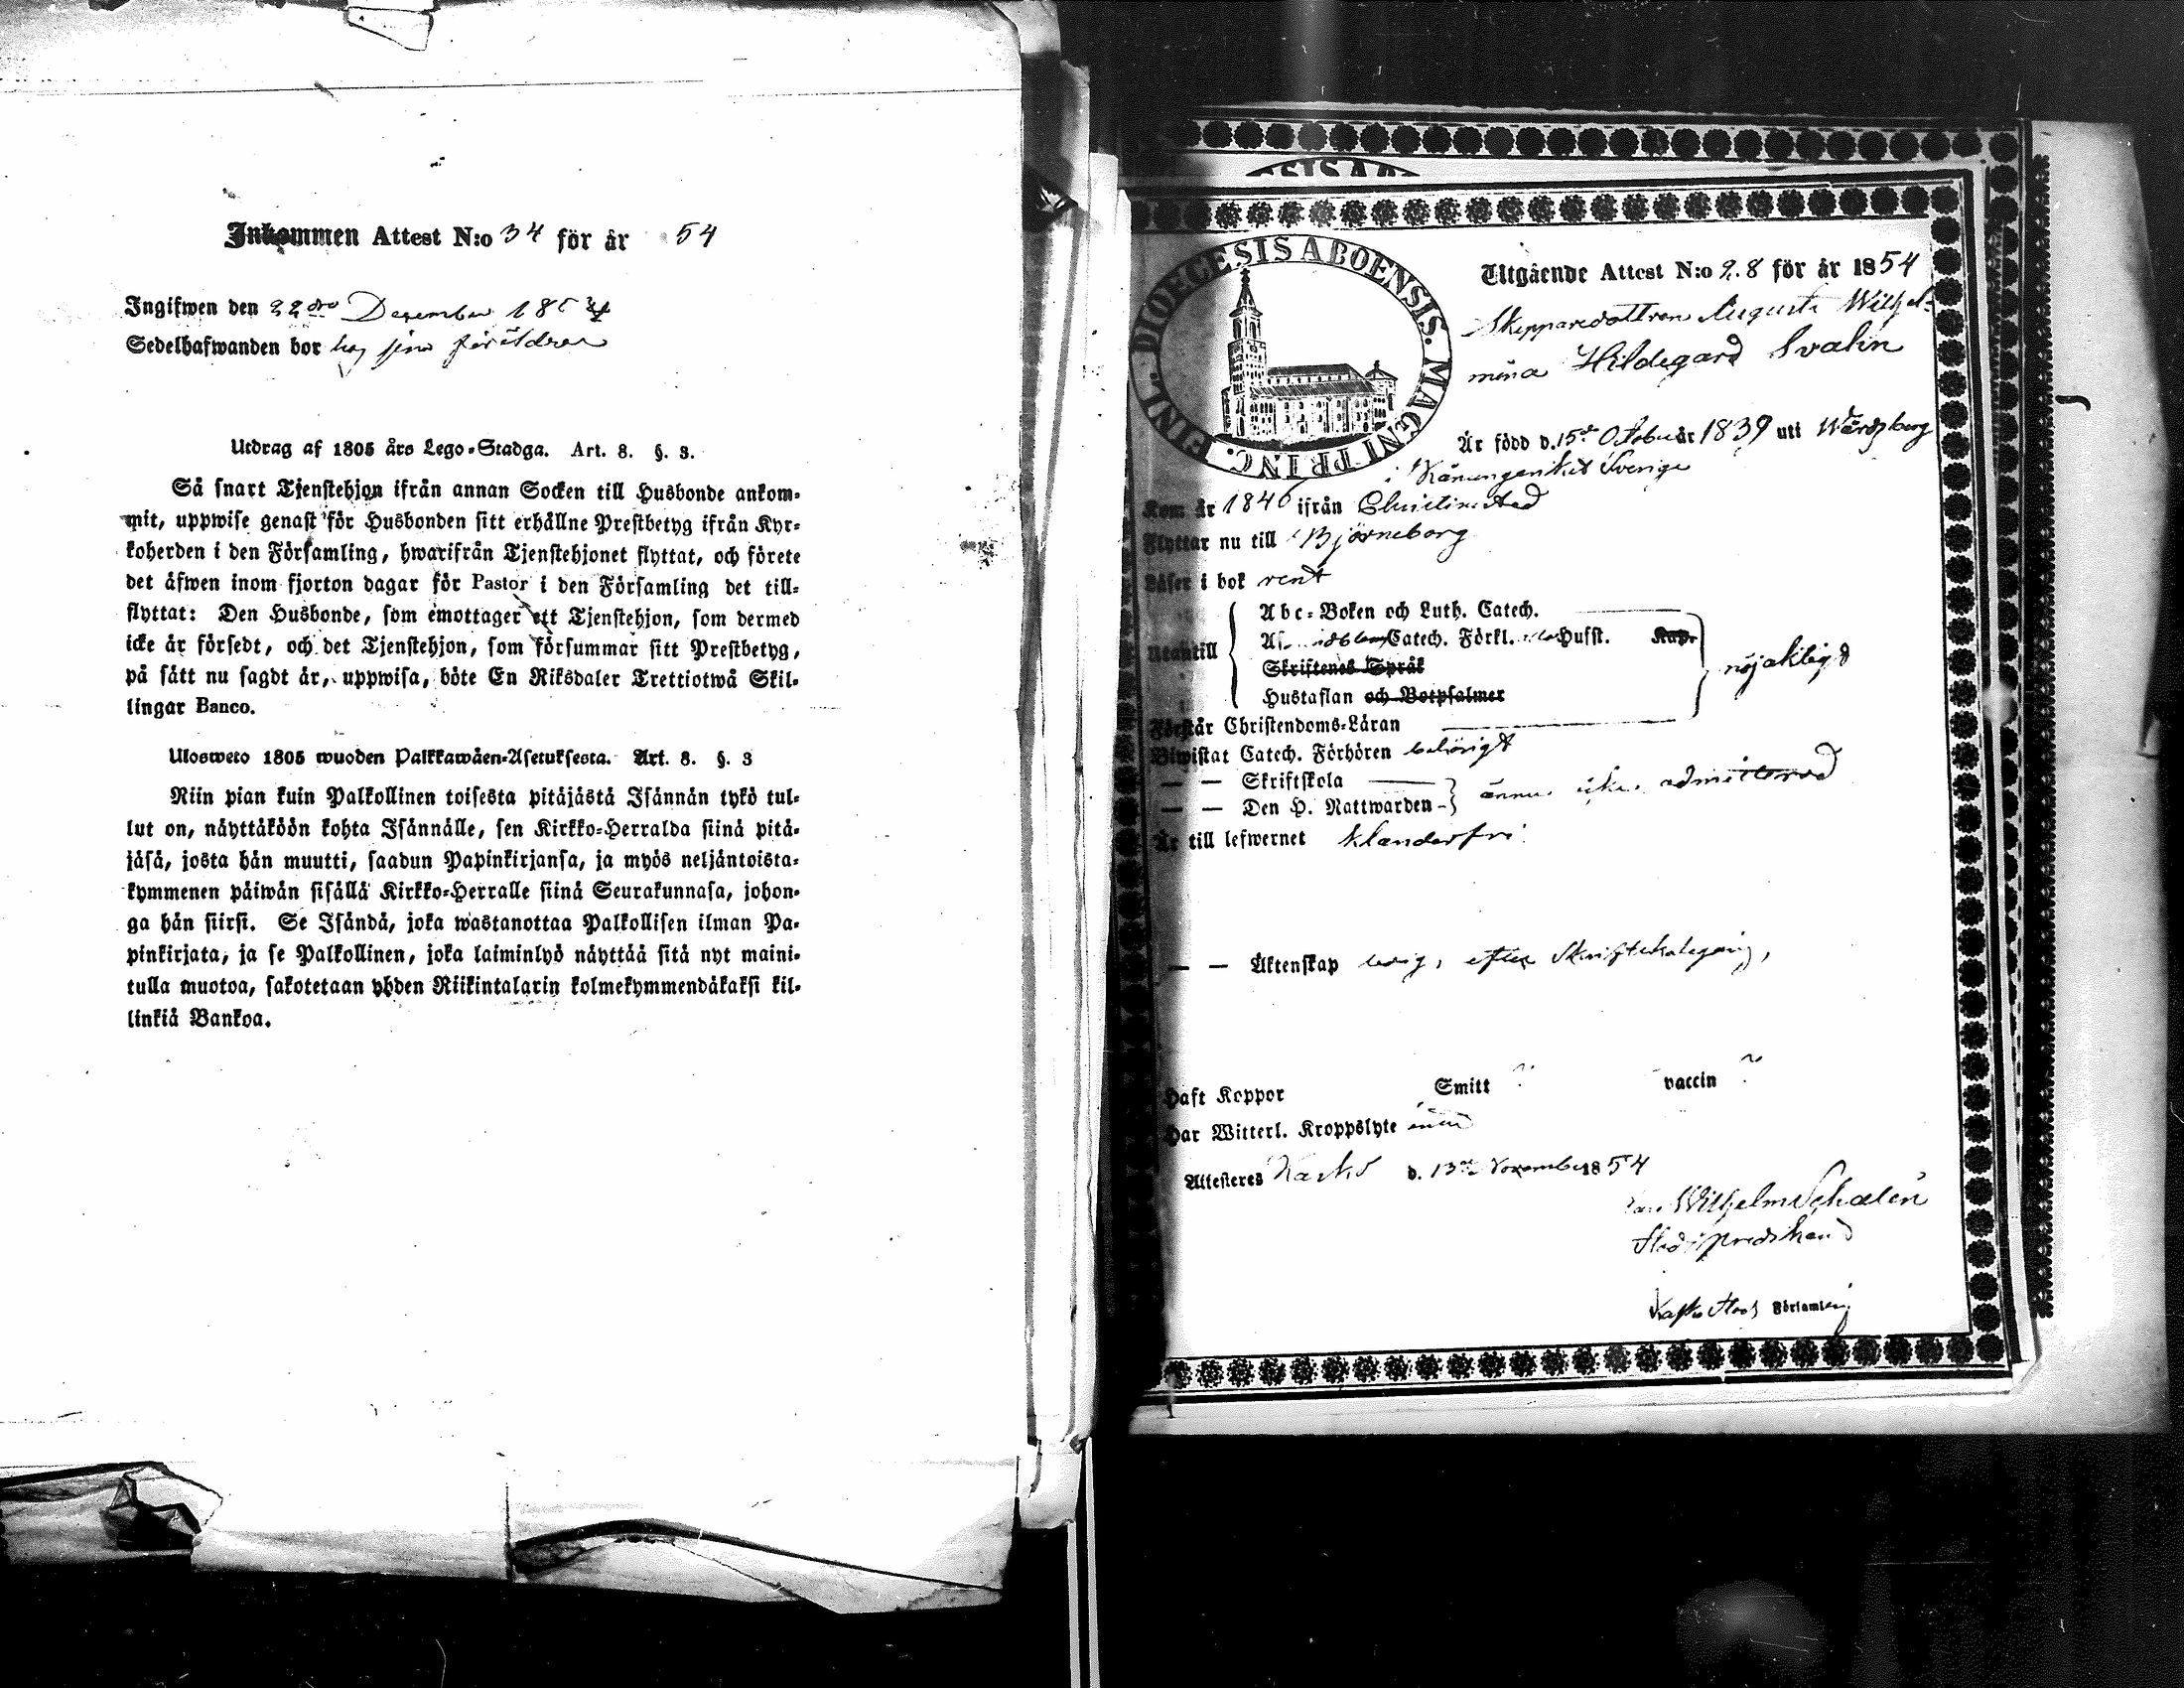 Inkommen Attest N:o 34 för år 54
Ingifwen den 22dra December 1854
Sedelhafwanden bor hos sina föräldrar
Utdrag af 1805 års Lego-Stadga. Art. 8. §. 3.
Så snart Tjenstehjon ifrån annan Socken till Husbonde ankom-
mit, uppwise genast för Husbonden sitt erhållne Prestbetyg ifrån Kyr-
koherden i den Församling, hwarifrån Tjenstehjonet flyttat, och förete
det äfwen inom fjorton dagar för Pastor i den Församling det till-
flyttat: Den Husbonde, som emottager ett Tjenstehjon, som dermed
icke är försedt, och det Tjenstehjon, som försummar sitt Prestbetyg,
på sätt nu sagdt är, uppwisa, böte En Riksdaler Trettiotwå Skil-
lingar Banco.
Ulosweto 1805 wuoden Palkkawäen-Asetuksesta. Art. 8. §. 3
Niin pian kuin Palkollinen toisesta pitäjästä Isännän tykö tul-
lut on, näyttäköön kohta Isännälle, sen Kirkko-Herralda siinä pitä-
jäsä, josta hän muutti, saadun Papinkirjansa, ja myös neljäntoista-
kymmenen päiwän sisällä Kirkko-Herralle siinä Seurakunnasa, johon-
ga hän siirsi. Se Isändä, joka wastanottaa Palkollisen ilman Pa-
pinkirjata, ja se Palkollinen, joka laiminlyö näyttää sitä nyt maini-
tulla muotoa, sakotetaan yhden Riikintalarin kolmekymmendäkaksi kil-
linkiä Bankoa.
DIOECESIS ABOENSIS. MAGNI PRINC. FINL.
Utgående Attest N:o 28 för år 1854
Skepparedottren Augusta Wilhel-
mina Hildegard Svalin
Är född d. 15de October år 1839 uti Wårdsberg
i Konungariket Sverige
Kom år 1846 ifrån Christinestad
Flyttar nu till Björneborg
Läser i bok rent
Utantill
Abc-Boken och Luth. Catech.
Catech. Förkl. Husst. Kapr
Skriftenes Språk
Hustaflan och Botpsalmer
nöjaktigt
Förstår Christendoms-Läran
Biwistat Catech. Förhören behörigt
— — Skriftskola
— — Den H. Nattwarden - ännu icke admitterad
Är till lefwernet klanderfri
— — Äktenskap ledig, efter Skriftskolegång,
Haft Koppor Smitt vaccin
Har Witterl. Kroppslyte
Attesteres Kaskö d. 13de November 1854
Wilhelm Schalin
Stadspredikand
Kaskö Stads Församling